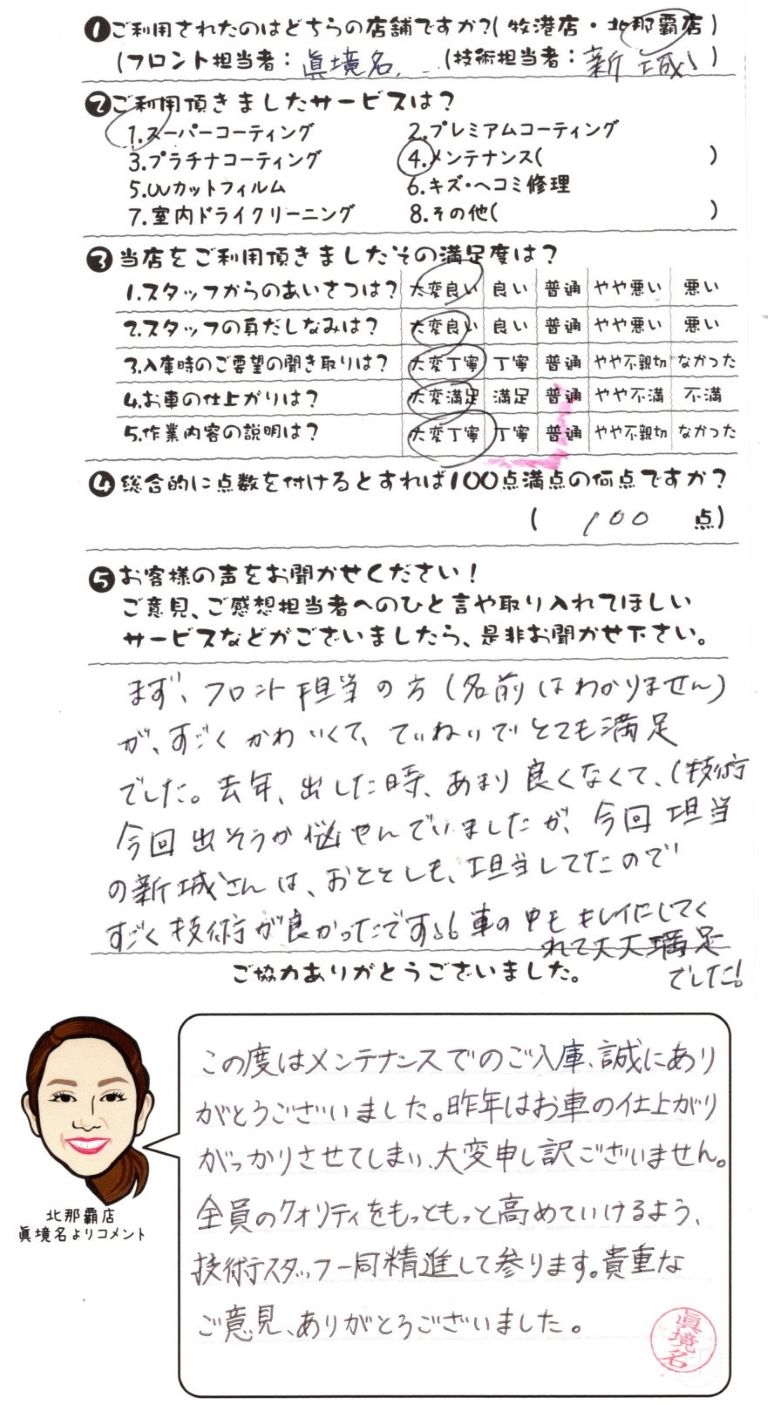 ❶ご利用されたのはどちらの店舗ですか?(牧港店・北那覇店)
(フロント担当者: 眞境名 (技術担当者: 新城 )
❷ご利用頂きましたサービスは?
1.スーパーコーティング 2.プレミアムコーティング
3.プラチナコーティング 4.メンテナンス( )
5.UVカットフィルム 6.キズ・ヘコミ修理
7.室内ドライクリーニング 8.その他( )
❸当店をご利用頂きましたその満足度は?
1.スタッフからのあいさつは? 大変良い 良い 普通 やや悪い 悪い
2.スタッフの身だしなみは? 大変良い 良い 普通 やや悪い 悪い
3.入庫時のご要望の聞き取りは? 大変丁寧 丁寧 普通 やや不親切 なかった
4.お車の仕上がりは? 大変満足 満足 普通 やや不満 不満
5.作業内容の説明は? 大変丁寧 丁寧 普通 やや不親切 なかった
❹総合的に点数を付けるとすれば100点満点の何点ですか?
( 100 点)
❺お客様の声をお聞かせください!
ご意見、ご感想担当者へのひと言や取り入れてほしい
サービスなどがございましたら、是非お聞かせ下さい。
まず、フロント担当の方(名前はわかりません)
が、すごくかわいくて、ていねいでとても満足
でした。去年、出した時、あまり良くなくて、(技術
今回出そうか悩やんでいましたが、今回担当
の新城さんは、おととしも、担当してたので
すごく技術が良かったです。車の中もキレイにしてく
れて大大満足
でした!
ご協力ありがとうございました。
この度はメンテナンスでのご入庫、誠にあり
がとうございました。昨年はお車の仕上がり
がっかりさせてしまい、大変申し訳ございません。
全員のクオリティをもっともっと高めていけるよう、
技術スタッフ一同精進して参ります。貴重な
ご意見、ありがとうございました。
眞境名
北那覇店
眞境名よりコメント